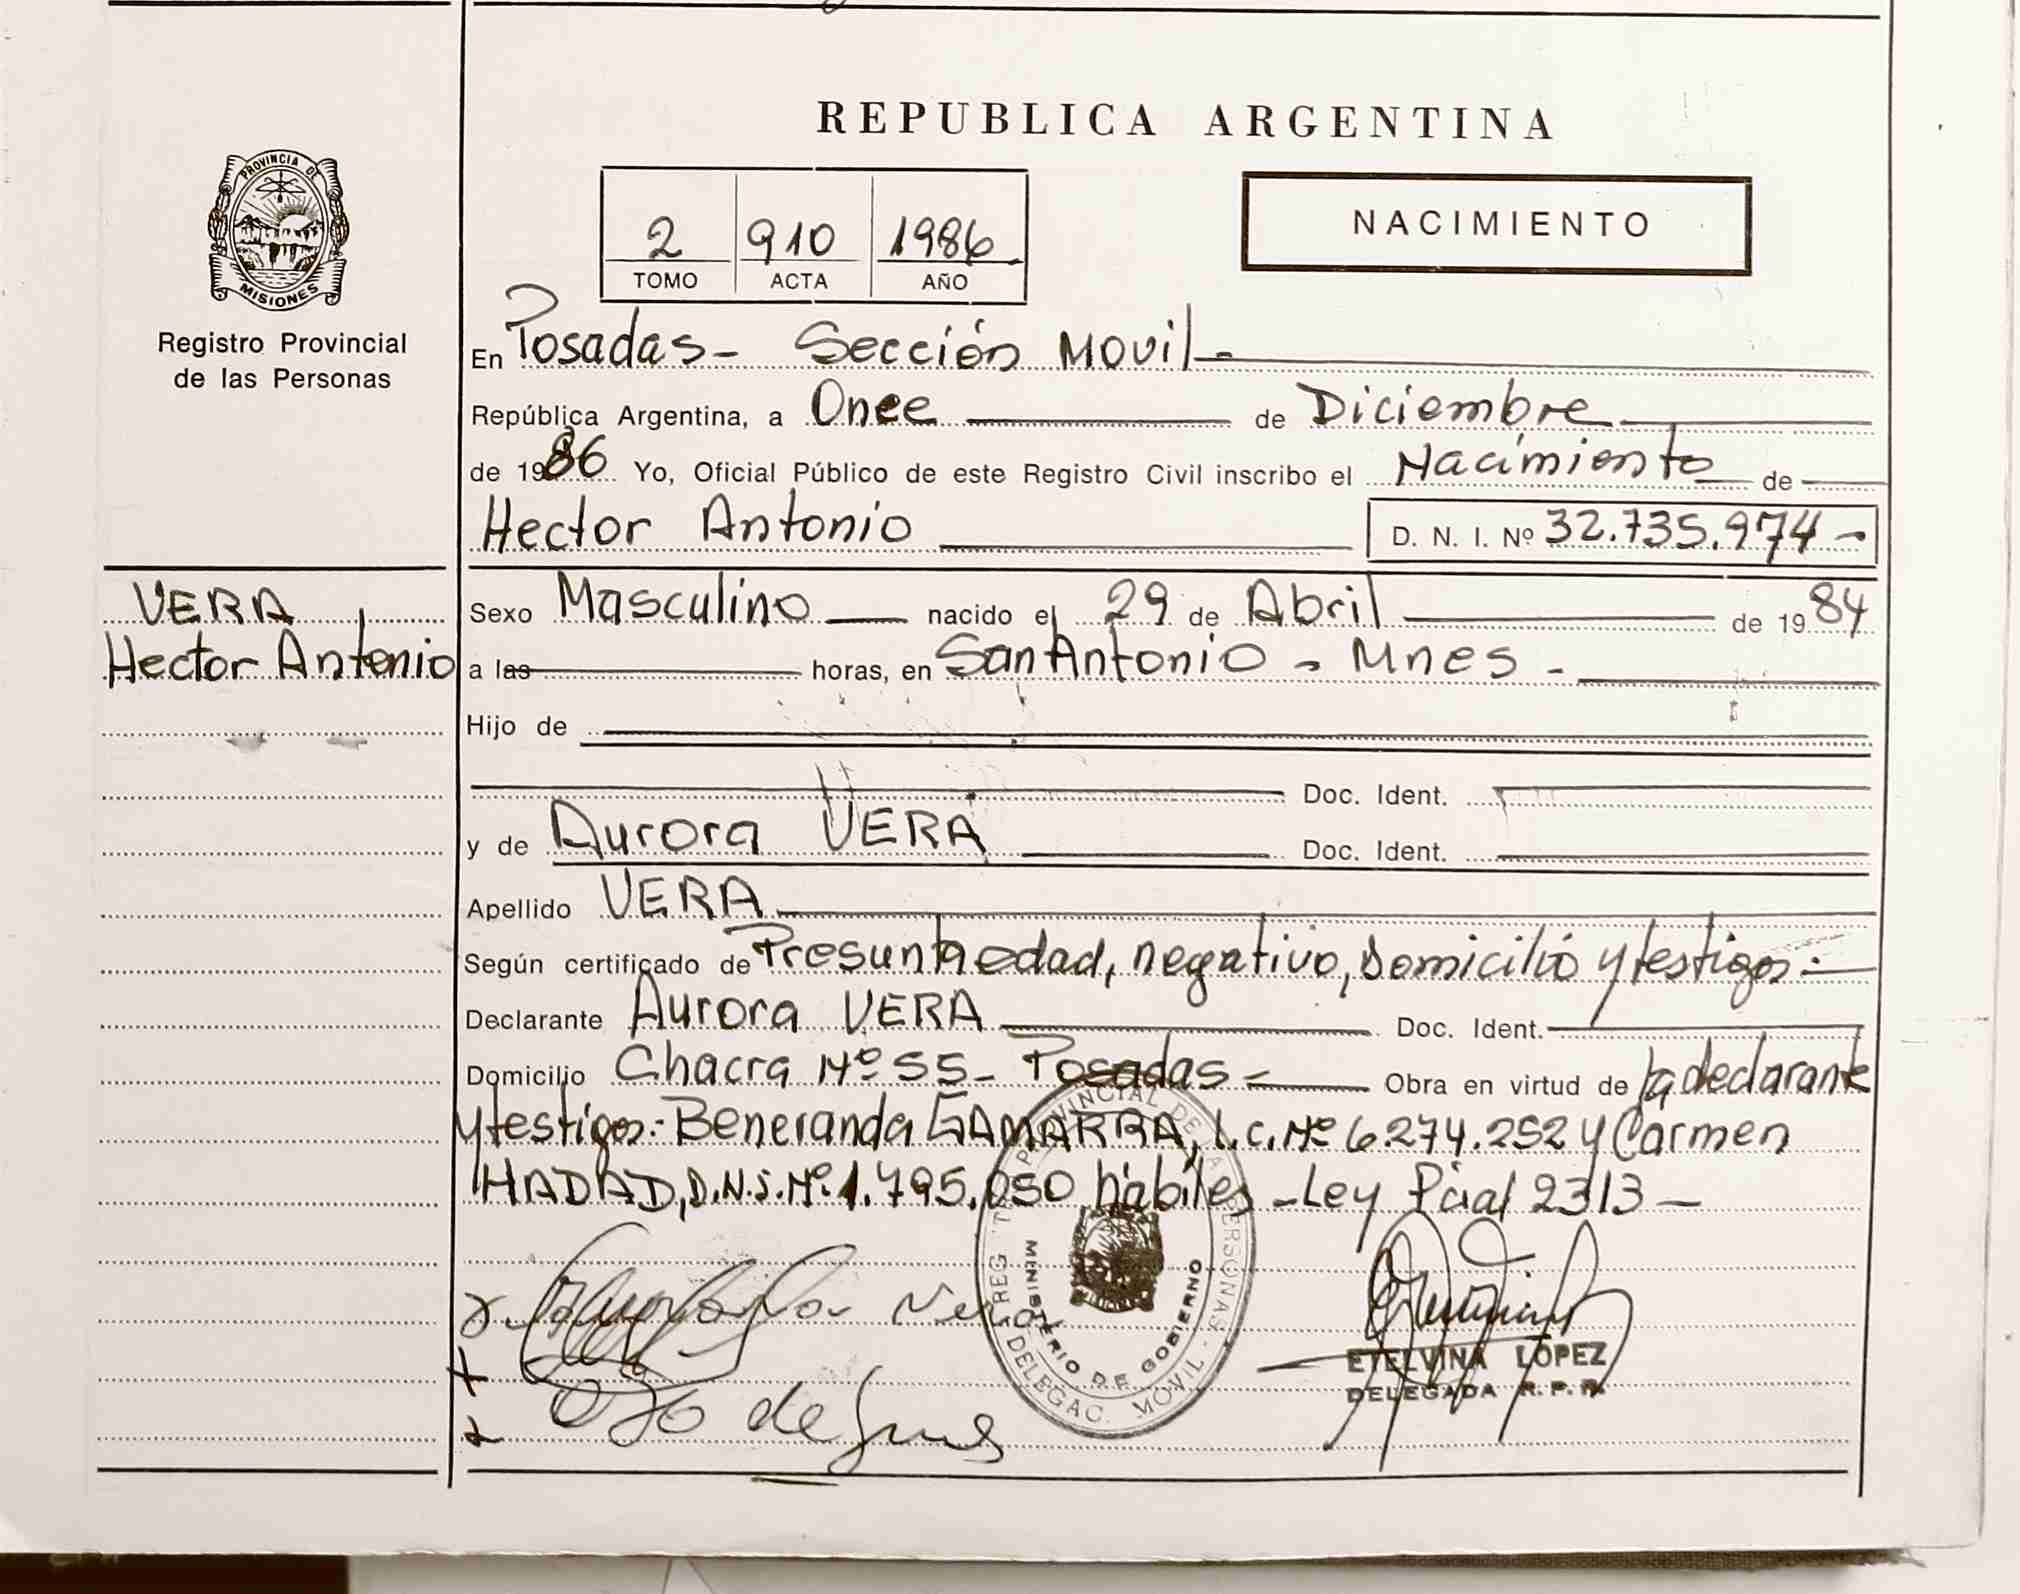 REPUBLICA ARGENTINA
PROVINCIA DE
MISIONES
Registro Provincial
de las Personas
2 910 1986
TOMO ACTA AÑO
NACIMIENTO
En Posadas - Sección Movil -
República Argentina, a Once de Diciembre
de 1986 Yo, Oficial Público de este Registro Civil inscribo el Nacimiento de
Hector Antonio D. N. I. Nº 32.735.974 -
VERA
Hector Antonio
Sexo Masculino nacido el 29 de Abril de 1984
a las horas, en San Antonio - Mnes -
Hijo de
Doc. Ident.
y de Aurora VERA Doc. Ident.
Apellido VERA
Según certificado de Presunta edad, negativo, Domicilio y testigos.-
Declarante Aurora VERA Doc. Ident.
Domicilio Chacra Nº 55 - Posadas - Obra en virtud de la declarante
y testigos.- Beneranda GAMARRA, L.C. Nº 6.274.252 y Carmen
HADAD, D.N.I. Nº 1.795.050 hábiles - Ley Pcial 2313 -
MINISTERIO DE GOBIERNO
DELEGAC. MOVIL
ETELVINA LÓPEZ
DELEGADA R.P.P.